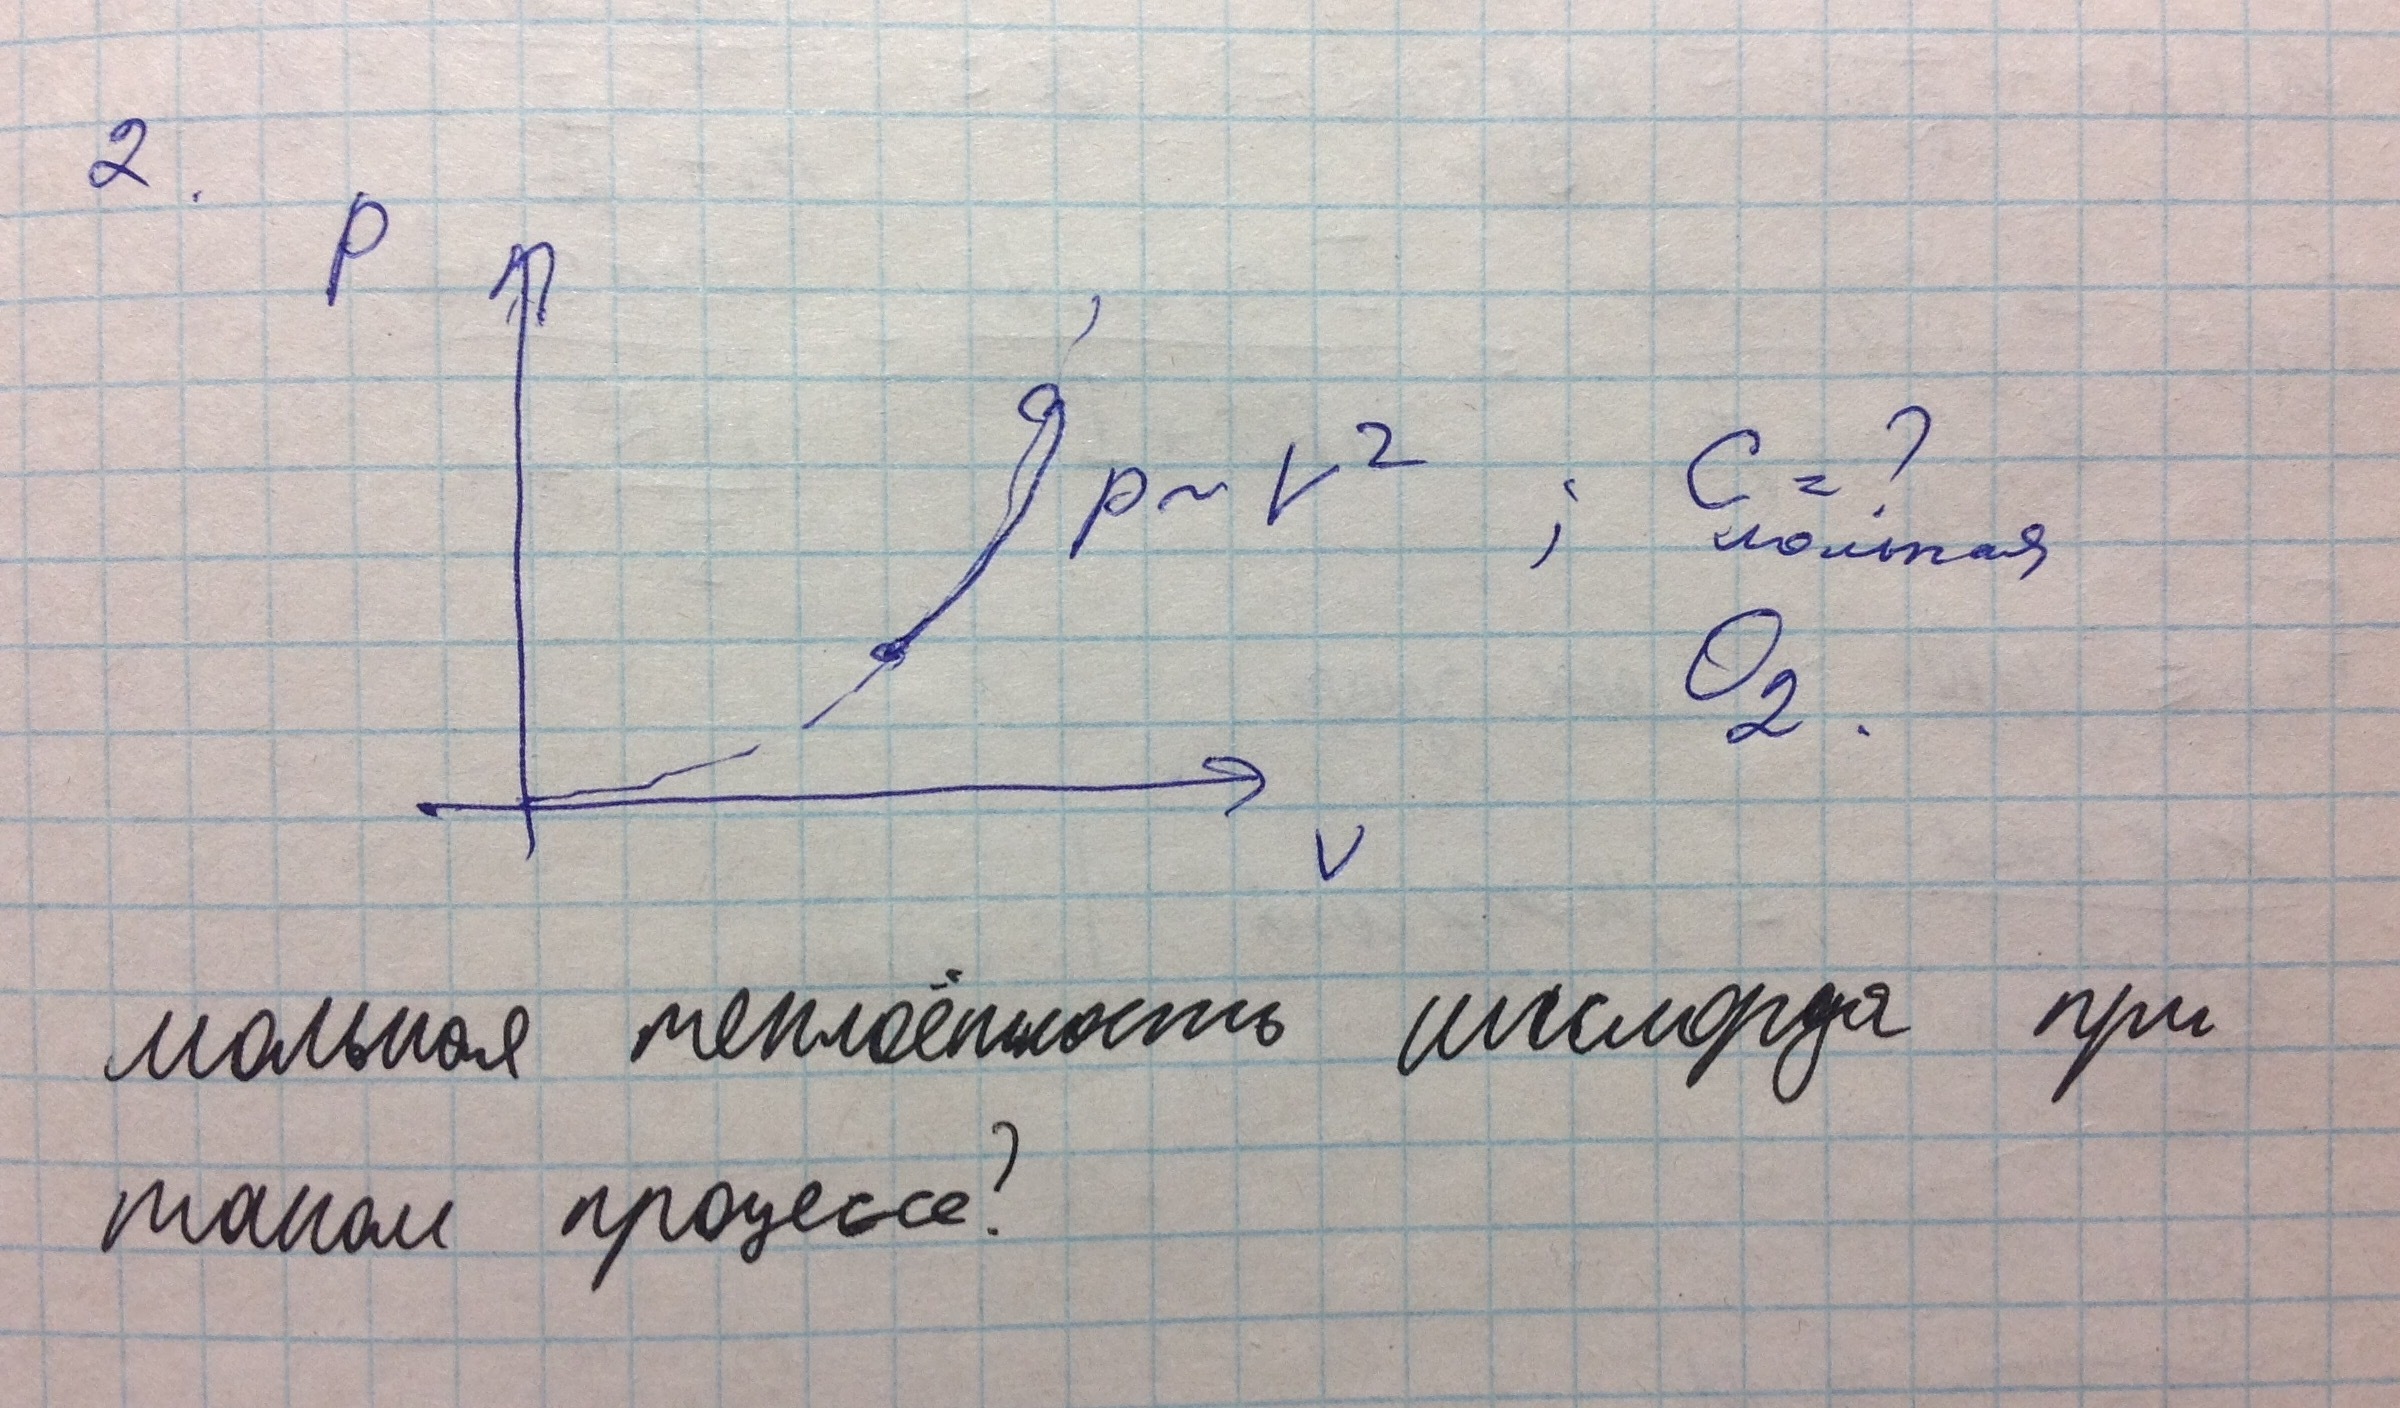 2.
p
p ~ V² ; C = ?
мольная
O₂.
V
мольная теплоёмкость кислорода при
таком процессе?